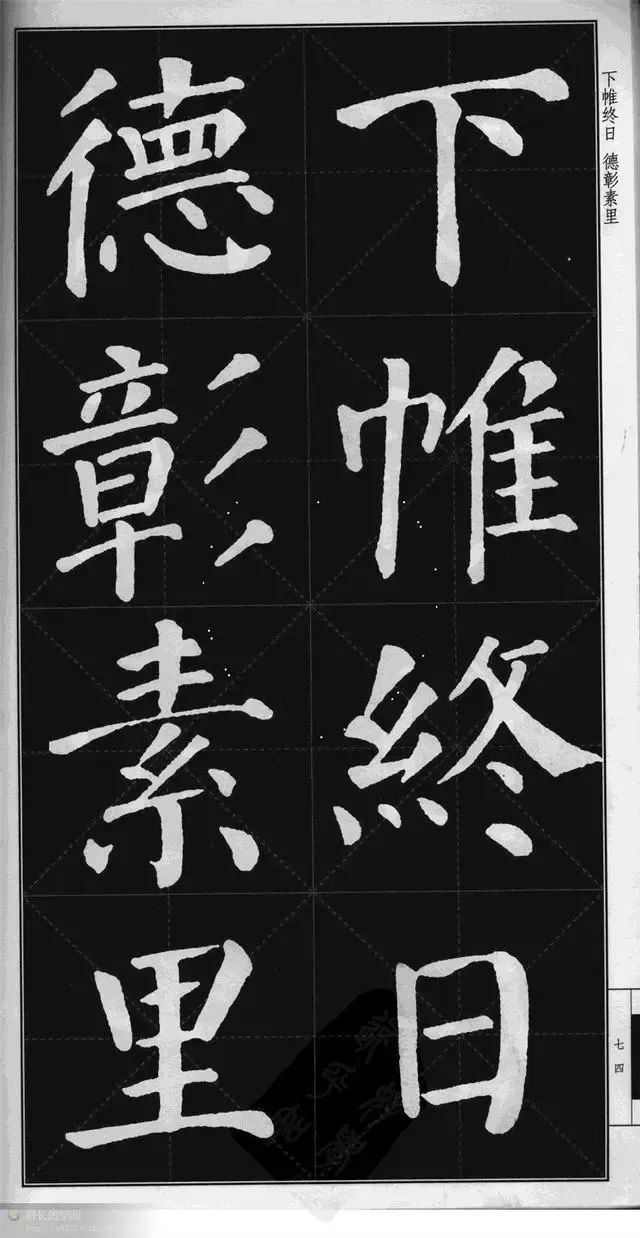 下帷终日 德彰素里
下帷終日
德彰素里
七四